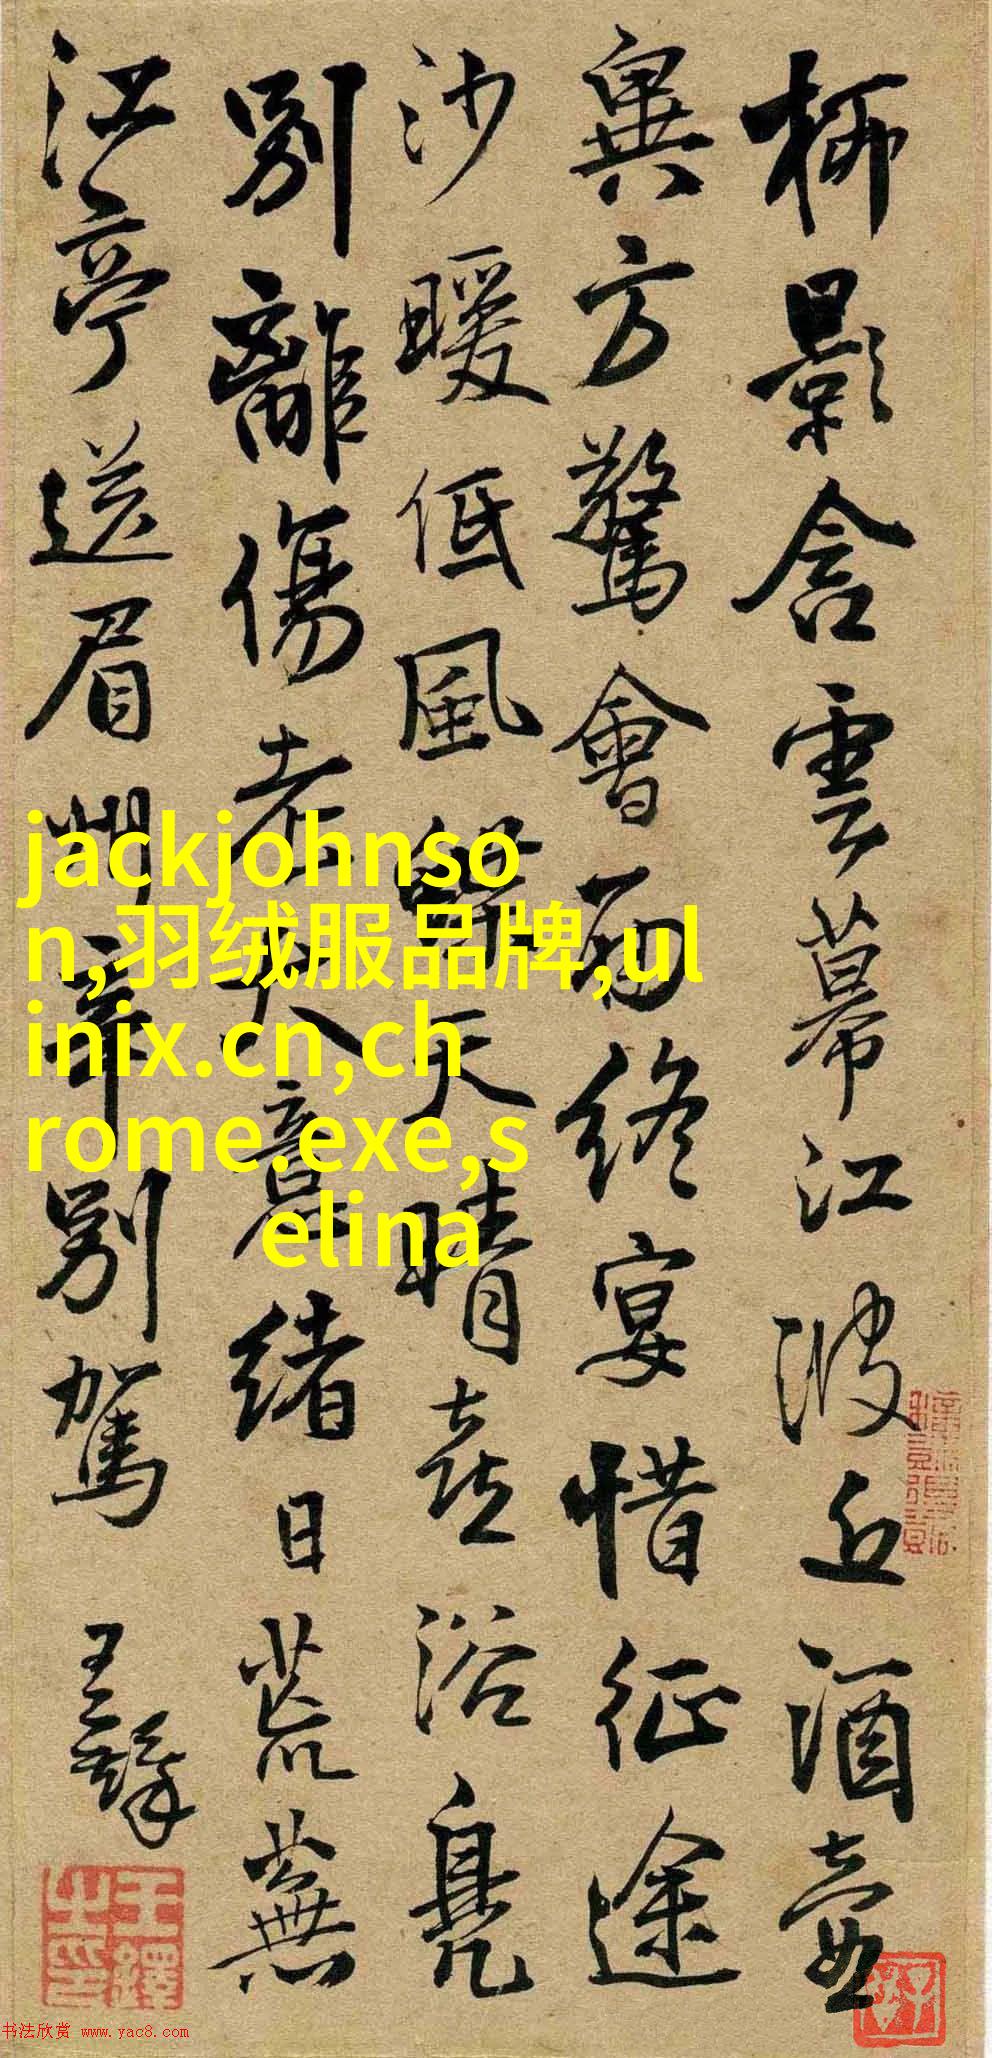 柳影含雲幕江波近酒壺
異方驚會面終宴惜征途
沙暖低風蝶天晴喜浴鳧
別離傷老大意緒日荒蕪
江亭送眉州辛別駕 王鐸
王鐸之印
jackjohnso
n,羽绒服品牌,ul
inix.cn,ch
rome.exe,s
elina
书法欣赏 www.yac8.com